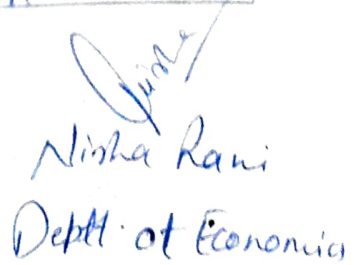 Nisha
Nisha Rani
Deptt. of Economics